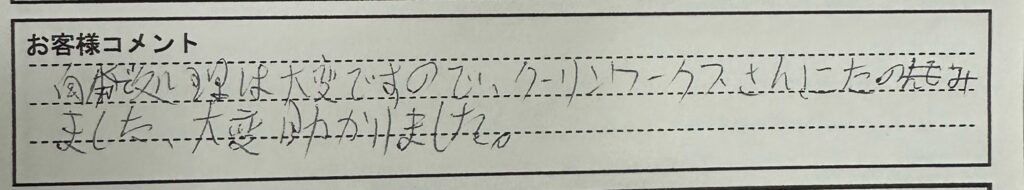 お客様コメント
自分で処理は大変ですので、クーリンワークスさんにたのみ
ました、大変助かりました。